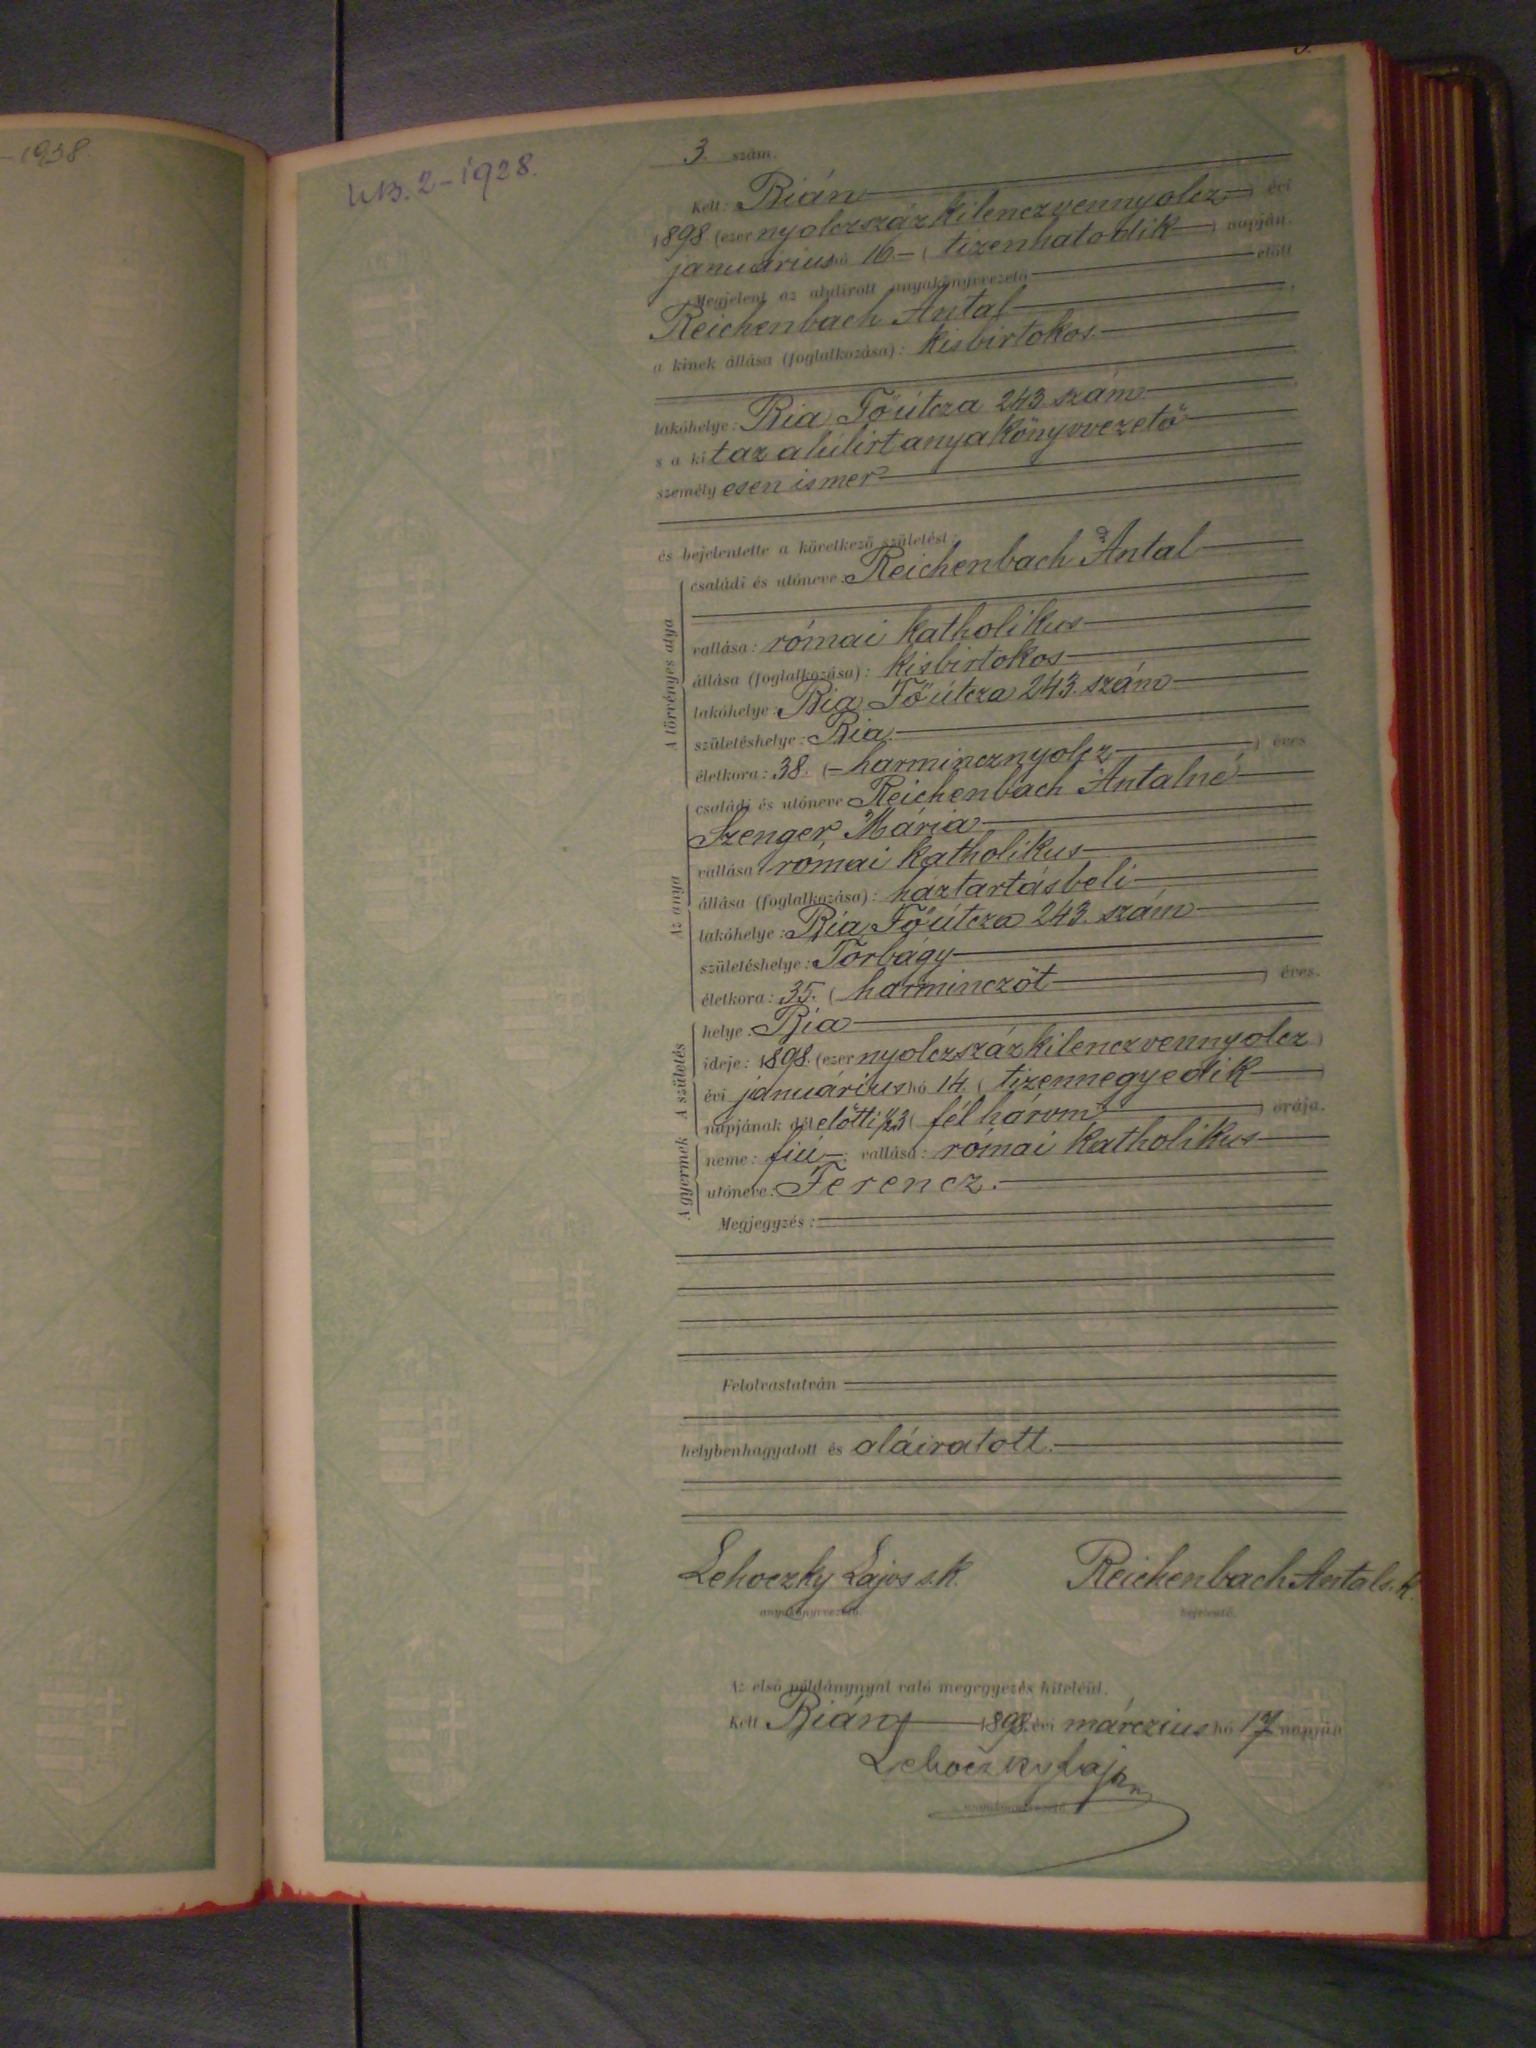 -1938.
UB. 2-1928.
3. szám.
Kelt: Bián
1898. (ezer nyolczszázkilenczvennyolcz) évi
januárius hó 16. (tizenhatodik) napján.
Megjelent az alulírott anyakönyvvezető előtt
Reichenbach Antal,
a kinek állása (foglalkozása): kisbirtokos
lakóhelye: Bia Főútcza 243 szám
s a kit az alúlirt anyakönyvvezető
személyesen ismer
és bejelentette a következő születést:
A törvényes atya
családi és utóneve: Reichenbach Antal
vallása: római katholikus
állása (foglalkozása): kisbirtokos
lakóhelye: Bia Főútcza 243. szám
születéshelye: Bia.
életkora: 38. (harmincznyolcz) éves
Az anya
családi és utóneve Reichenbach Antalné
Szenger Mária
vallása római katholikus
állása (foglalkozása): háztartásbeli
lakóhelye: Bia Főútcza 243. szám
születéshelye: Torbágy
életkora: 35. (harminczöt) éves.
A születés
helye: Bia
ideje: 1898. (ezer nyolczszázkilenczvennyolcz)
évi januárius hó 14. (tizennegyedik)
napjának dél előtti ½3 (fél három) órája.
A gyermek
neme: fiú; vallása: római katholikus
utóneve: Ferencz.
Megjegyzés:
Felolvastatván
helybenhagyatott és aláiratott.
Lehoczky Lajos s.k. Reichenbach Antal s.k.
anyakönyvvezető. bejelentő.
Az első példánynyal való megegyezés hiteléül.
Kelt Bián, 1898. évi márczius hó 17 napján
Lehoczky Lajos
anyakönyvvezető